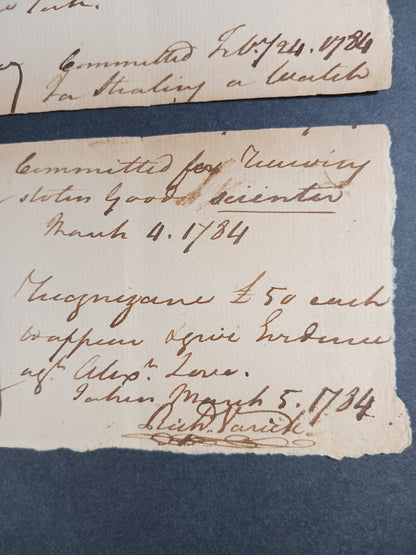 York.
Committed Feby 24. 1784
for Stealing a Watch
Committed for Receiving
stolen Goods scienter
March 4. 1784
Recognizance £50 each
to appear & give Evidence
agt. Alexr. Love.
Taken March 5. 1784
Richd. Varick.